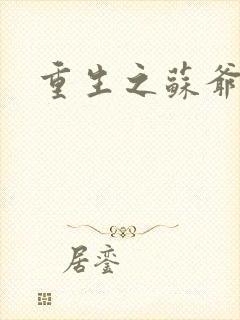 重生之蘇爺
居鸞